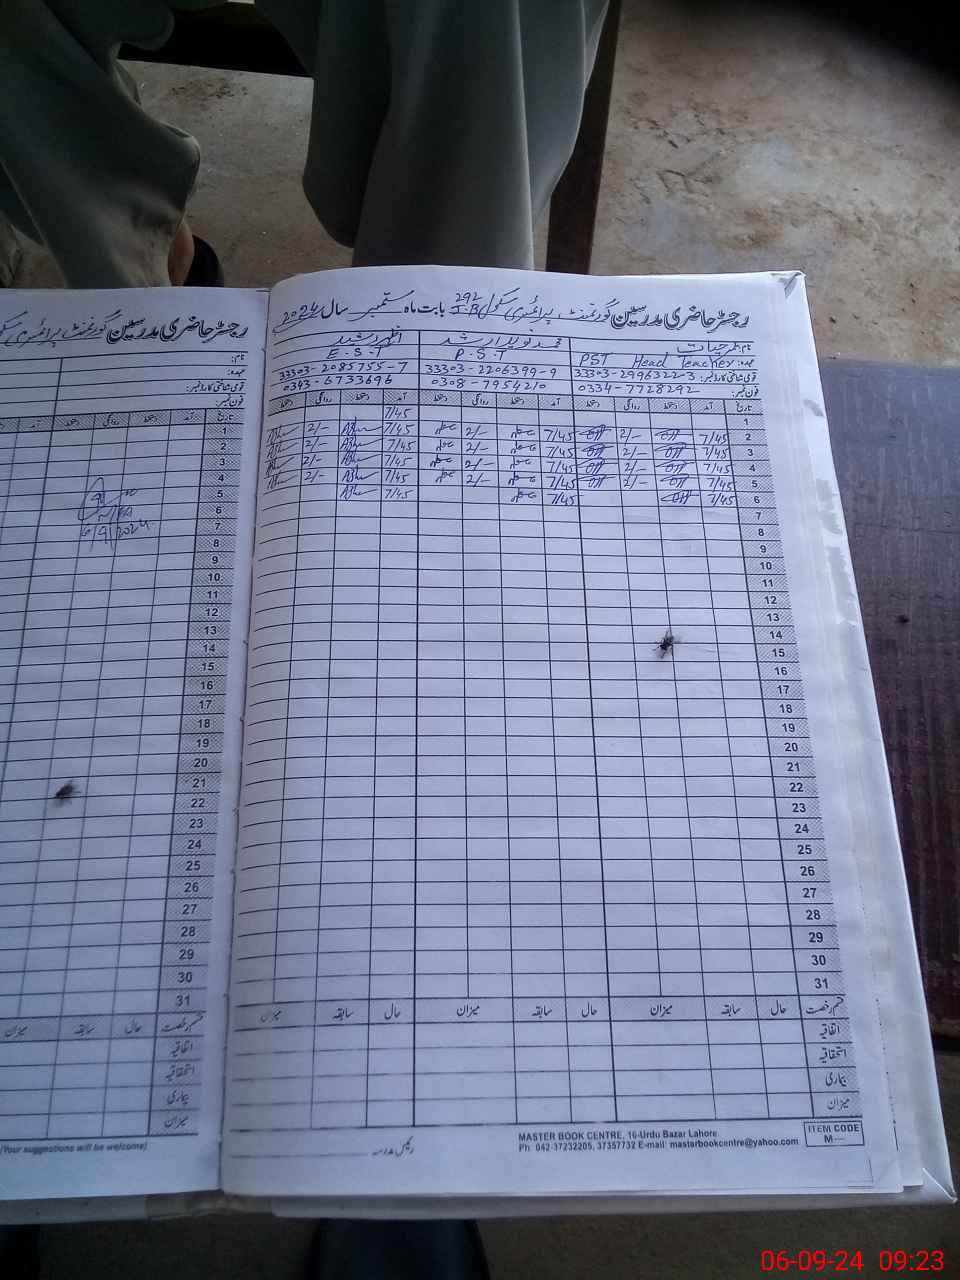 رجسٹر حاضری مدرسین گورنمنٹ پرائمری سکول 292 J.B بابت ماہ ستمبر سال 2024
نام: عمر حیات محمد نوید ارشد اظہر رشید
عہدہ: PST Head Teacher P.S.T E.S.T
قومی شناختی کارڈ نمبر: 33303-2996322-3 33303-2206399-9 33303-2085755-7
فون نمبر: 0334-7728292 0308-7954210 0343-6733696
تاریخ آمد دستخط روانگی دستخط آمد دستخط روانگی دستخط آمد دستخط روانگی دستخط
1 7/45
2 7/45 2/- 7/45 2/- 7/45 2/-
3 7/45 2/- 7/45 2/- 7/45 2/-
4 7/45 2/- 7/45 2/- 7/45 2/-
5 7/45 2/- 7/45 2/- 7/45 2/-
6 7/45 7/45 7/45
7
8
9
10
11
12
13
14
15
16
17
18
19
20
21
22
23
24
25
26
27
28
29
30
31
قسم رخصت حال سابقہ میزان حال سابقہ میزان حال سابقہ میزان
اتفاقیہ
استحقاقیہ
بیماری
میزان
رئیس مدرسہ
MASTER BOOK CENTRE, 16-Urdu Bazar Lahore
Ph 042-37232205, 37357732 E-mail: mastarbookcentre@yahoo.com
ITEM CODE
M---
رجسٹر حاضری مدرسین گورنمنٹ پرائمری سکول
نام:
عہدہ:
قومی شناختی کارڈ نمبر:
فون نمبر:
تاریخ آمد دستخط روانگی دستخط آمد
1
2
3
4
5
6
7
6/9/2024
8
9
10
11
12
13
14
15
16
17
18
19
20
21
22
23
24
25
26
27
28
29
30
31
قسم رخصت حال سابقہ میزان
اتفاقیہ
استحقاقیہ
بیماری
میزان
(Your suggestions will be welcome)
06-09-24 09:23